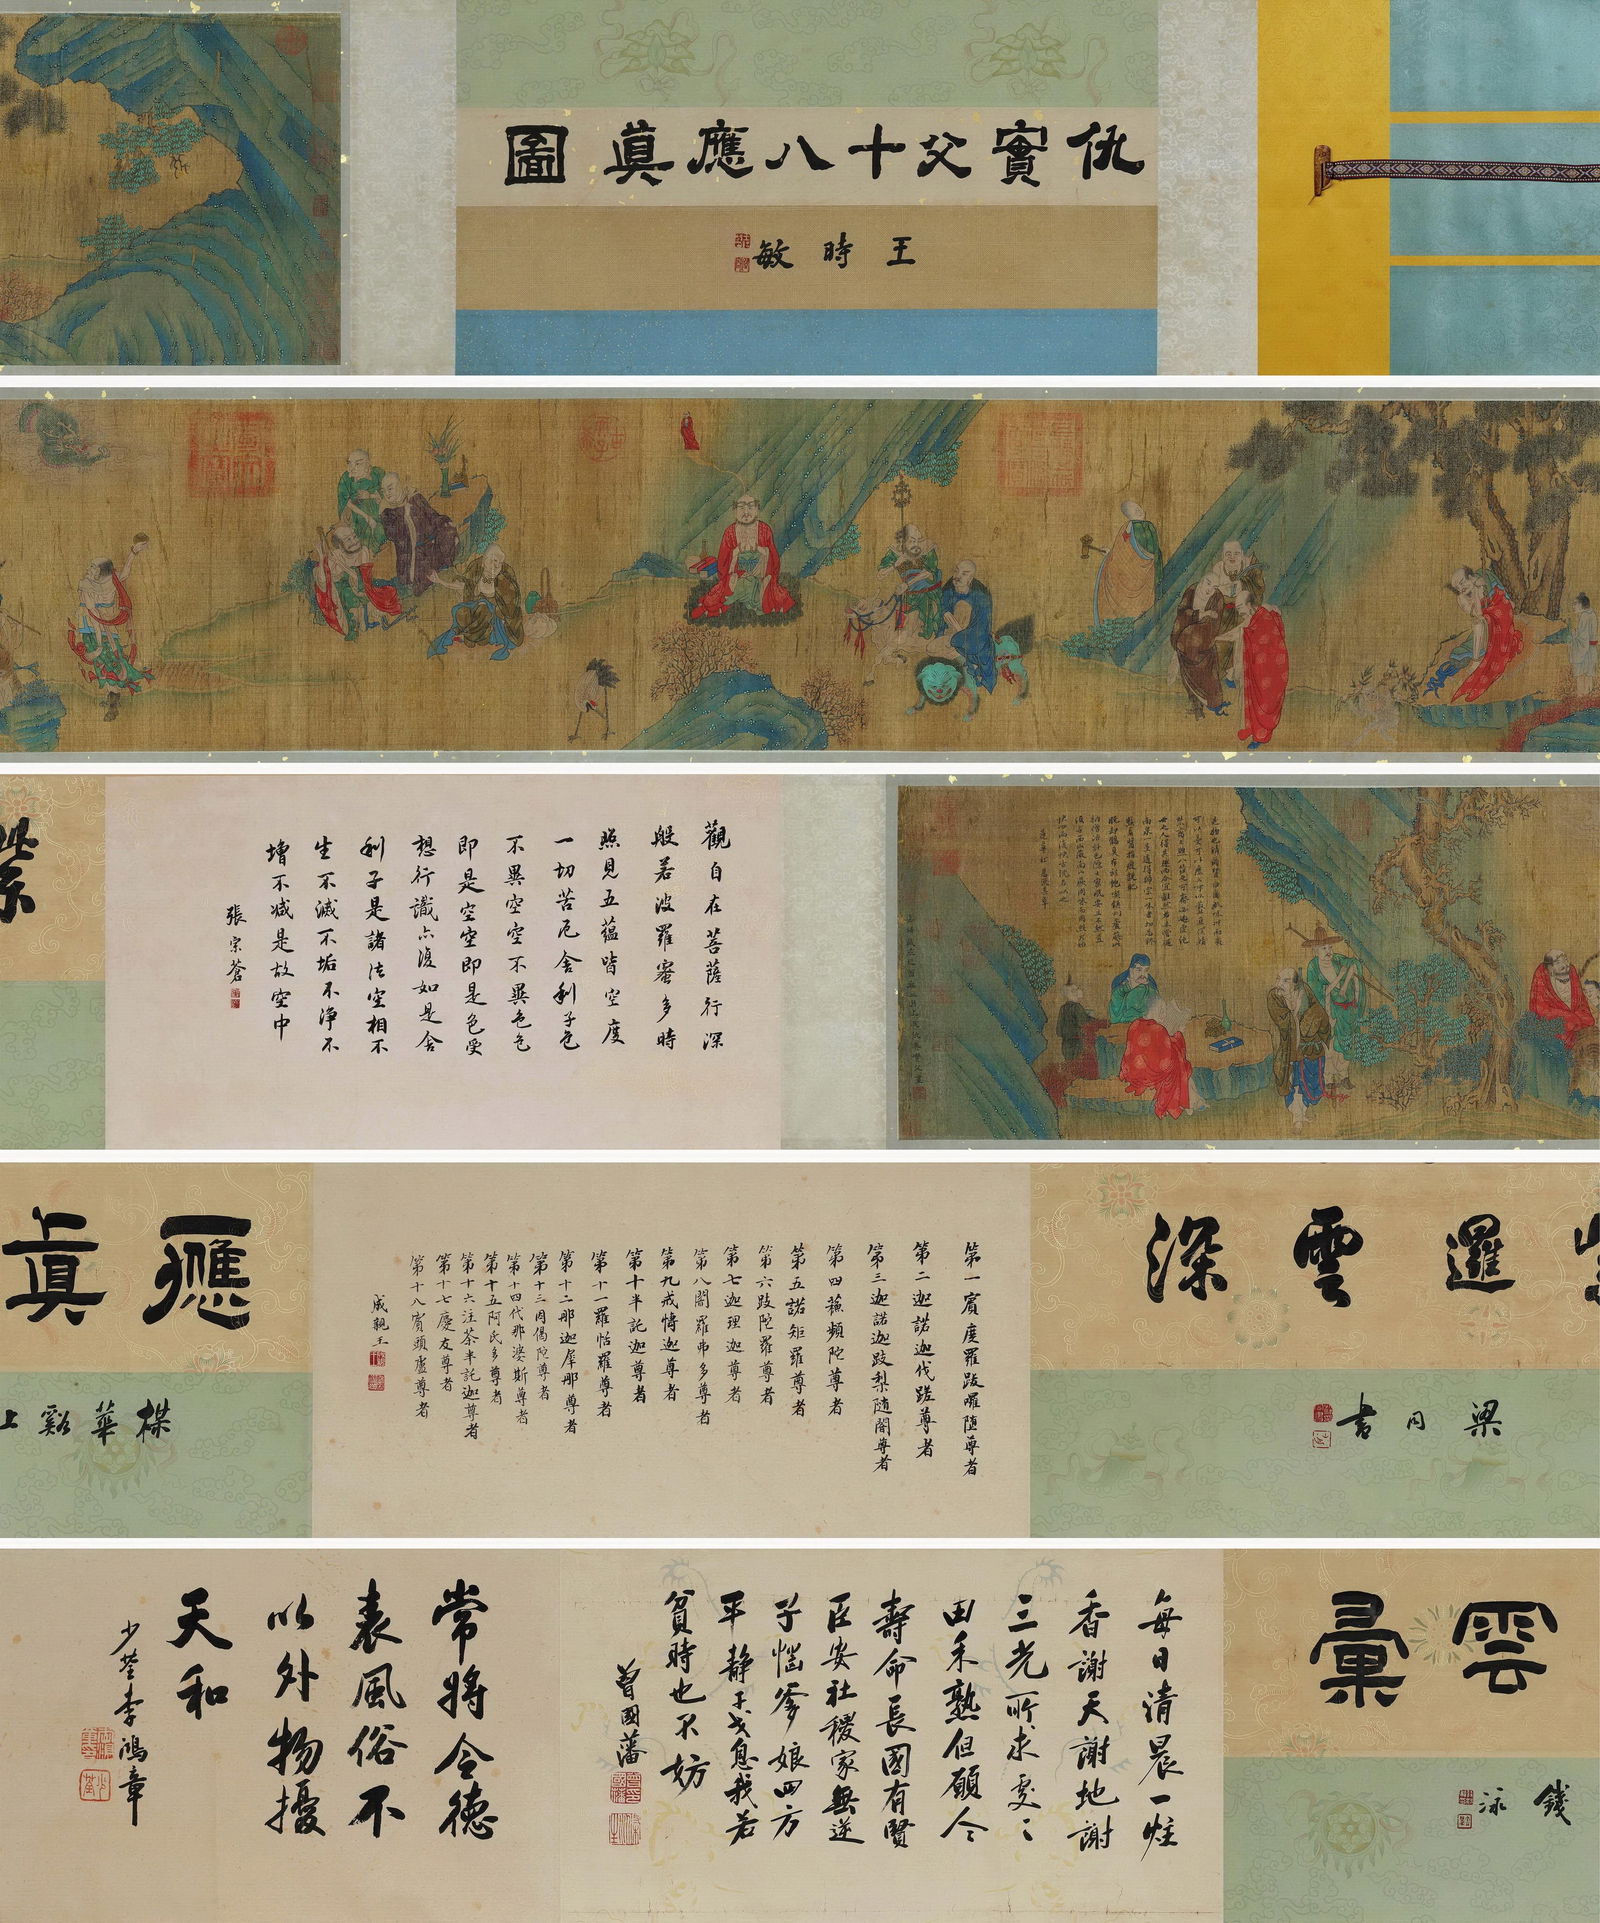 仇實父十八應真圖
王時敏
觀自在菩薩行深
般若波羅蜜多時
照見五蘊皆空度
一切苦厄舍利子色
不異空空不異色色
即是空空即是色受
想行識亦復如是舍
利子是諸法空相不
生不滅不垢不淨不
增不減是故空中
張宗蒼
紫邏雲深
梁同書
第一賓度羅跋囉墮尊者
第二迦諾迦伐蹉尊者
第三迦諾迦跋梨隨闍尊者
第四蘇頻陀尊者
第五諾矩羅尊者
第六跋陀羅尊者
第七迦理迦尊者
第八闍羅弗多尊者
第九戒博迦尊者
第十半託迦尊者
第十一羅怙羅尊者
第十二那迦犀那尊者
第十三因偈陀尊者
第十四代那婆斯尊者
第十五阿氏多尊者
第十六注茶半託迦尊者
第十七慶友尊者
第十八賓頭盧尊者
成親王
應真雲彙
楳華谿上
錢泳
每日清晨一炷
香謝天謝地謝
三光所求處〻
田禾熟但願人
壽命長國有賢
臣安社稷家無逆
子惱爹娘四方
平靜干戈息我若
貧時也不妨
曾國藩
常將令德
表風俗不
以外物擾
天和
少荃李鴻章